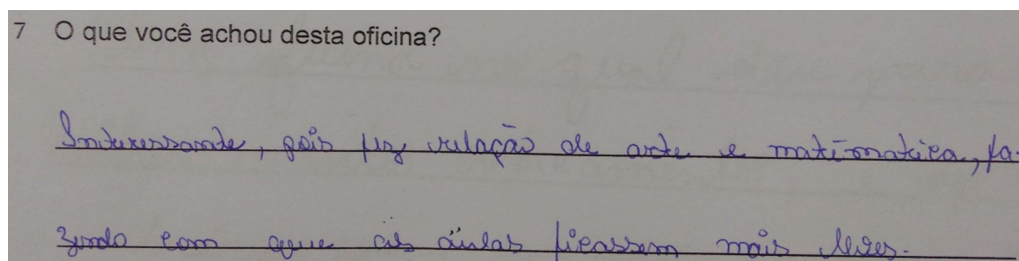 7 O que você achou desta oficina?
Interessante, pois fez relação de arte e matemática, fa-
zendo com que as aulas ficassem mais leves.